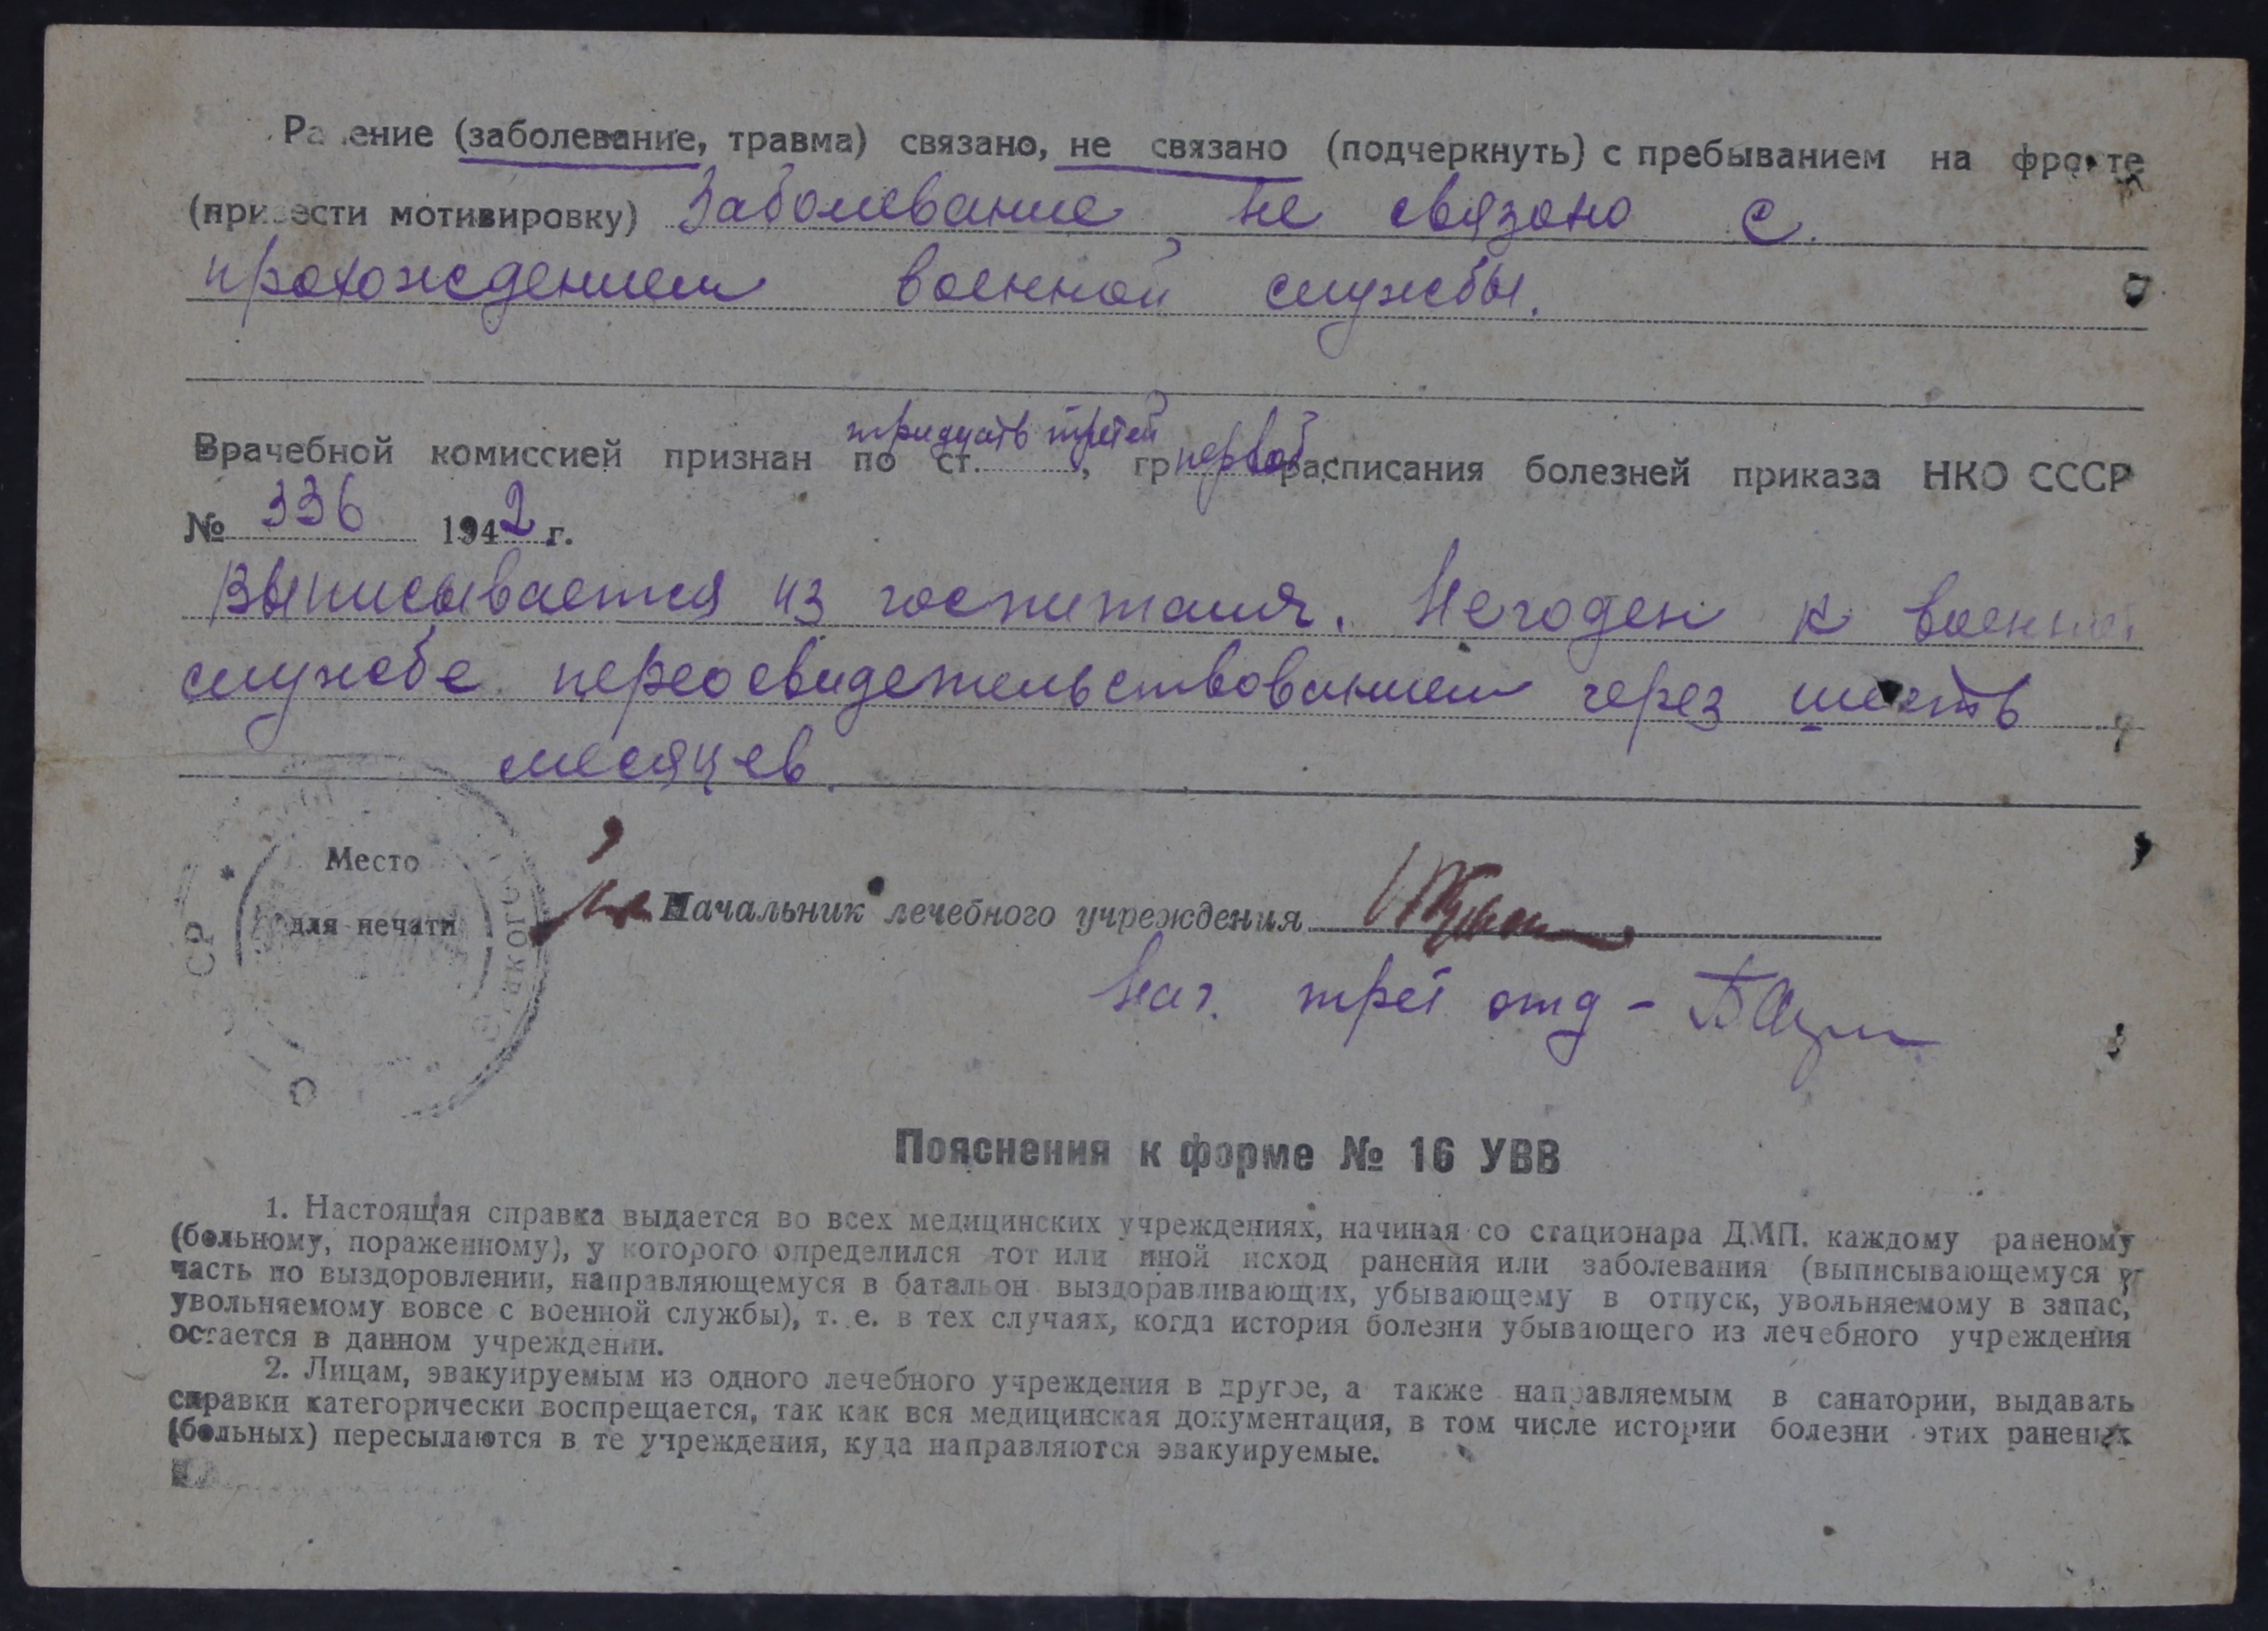 Ранение (заболевание, травма) связано, не связано (подчеркнуть) с пребыванием на фронте
(привести мотивировку) Заболевание не связано с
прохождением военной службы.
тридцать третей первой
Врачебной комиссией признан по ст. , гр расписания болезней приказа НКО СССР
№ 336 1942 г.
Выписывается из госпиталя. Негоден к военной
службе переосвидетельствованием через шесть
месяцев.
Место
для печати
Начальник лечебного учреждения
Нач. трет отд -
Пояснения к форме № 16 УВВ
1. Настоящая справка выдается во всех медицинских учреждениях, начиная со стационара ДМП. каждому раненому
(больному, пораженному), у которого определился тот или иной исход ранения или заболевания (выписывающемуся в
часть по выздоровлении, направляющемуся в батальон выздоравливающих, убывающему в отпуск, увольняемому в запас,
увольняемому вовсе с военной службы), т. е. в тех случаях, когда история болезни убывающего из лечебного учреждения
остается в данном учреждении.
2. Лицам, эвакуируемым из одного лечебного учреждения в другое, а также направляемым в санатории, выдавать
справки категорически воспрещается, так как вся медицинская документация, в том числе истории болезни этих раненых
(больных) пересылаются в те учреждения, куда направляются эвакуируемые.